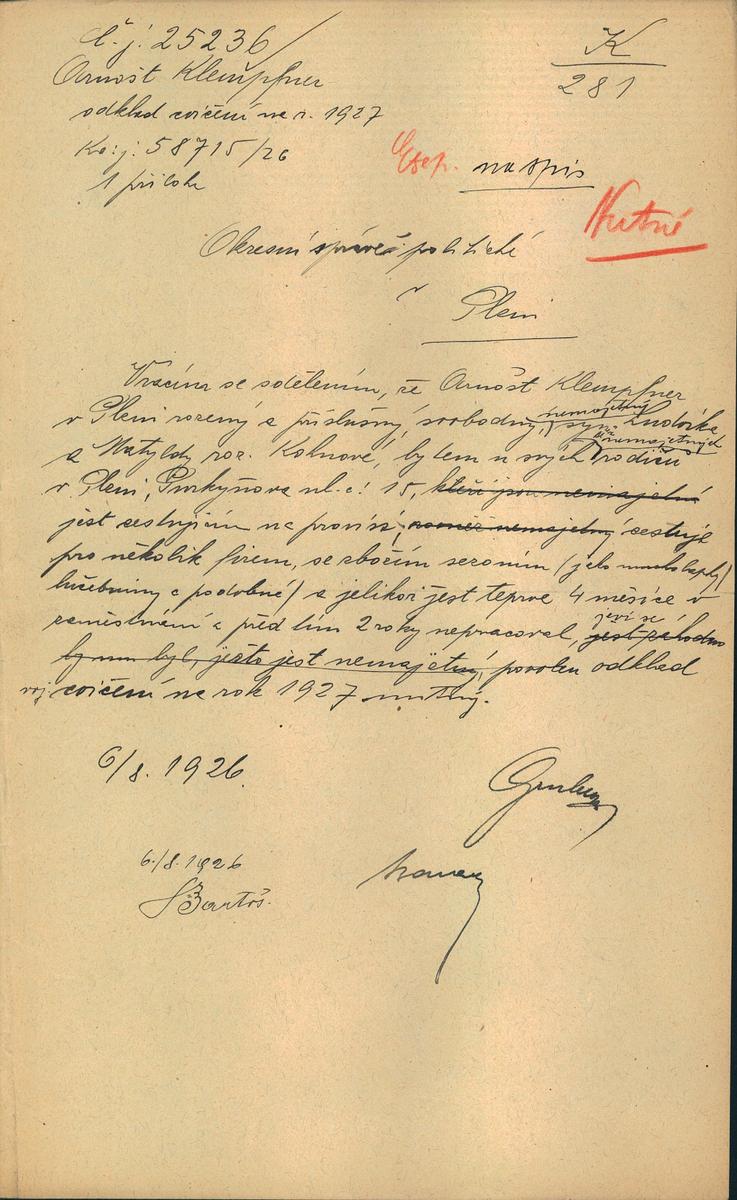 č. j. 25236/
K
281
Arnošt Klempfner
odklad cvičení na r. 1927
Ko: j: 58715/26
1 příloha
Exp. na spis
Nutné
Okresní správě politické
v
Plzni
Vrácíme se sdělením, že Arnošt Klempfner
v Plzni rozený a příslušný, svobodný, nemajetný syn Ludvíka
a Matyldy roz. Kohnové, bytem u svých nemajetných rodičů
v Plzni, Purkyňova ul. č: 15, kteří jsou nemajetní
jest cestujícím na provisi, rovněž nemajetný cestuje
pro několik firem, se zbožím sezoním (jako
lučebniny a podobné) a jelikož jest teprve 4 měsíce v
zaměstnání a před tím 2 roky nepracoval, jeví se
by mu byl, ježto jest nemajetný, povolen odklad
voj cvičení na rok 1927 nutný.
6/8. 1926.
6./8. 1926
Bartoš.